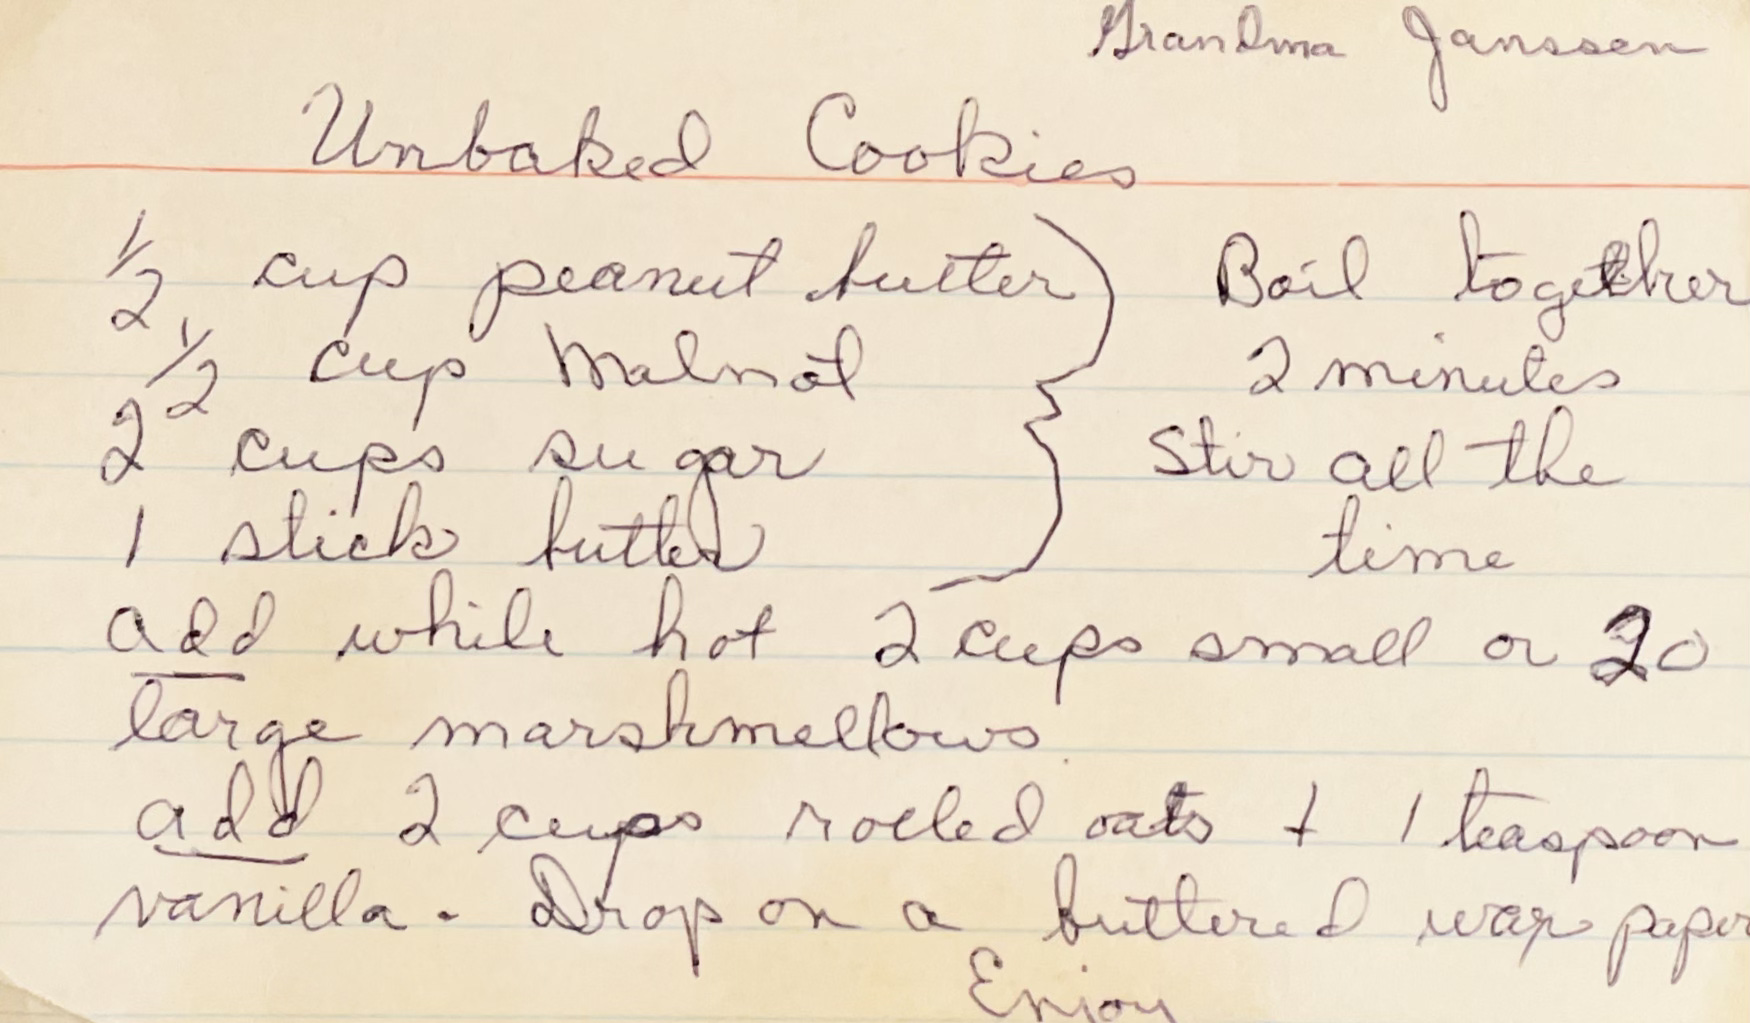 Grandma Janssen
Unbaked Cookies
1/2 cup peanut butter } Boil together
1/2 cup Malnot 2 minutes
2 cups sugar Stir all the
1 stick butter time
add while hot 2 cups small or 20
large marshmellows.
add 2 cups rolled oats + 1 teaspoon
vanilla. Drop on a buttered wax paper
Enjoy